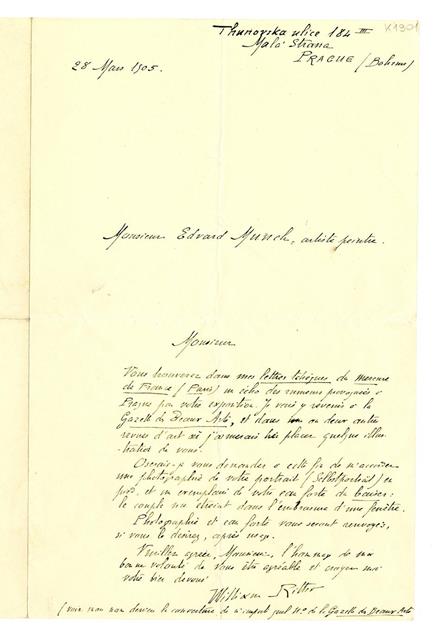 K1301
Thunovska ulice 184 III
Malá Strana
PRAGUE (Boheme)
28 Mars 1905.
Monsieur Edvard Munch, artiste peintre.
Monsieur
Vous trouverez dans mes lettres tchèques du Mercure
de France (Paris) un écho des rumeurs provoquées à
Prague par votre exposition. J'y reviens à la
Gazette des Beaux Arts, et dans un ou deux autre
revues d'art où j'aimerais placer quelque illus-
tration de vous.
Oserais-je vous demander à cette fin de m'accorder
une photographie de votre portrait (Selbstportrait) en
pied, et un exemplaire de votre eau forte du baiser:
le couple nu debout dans l'embrasure d'une fenêtre.
Photographie et eau forte vous seront renvoyés,
si vous le désirez, après usage.
Veuillez agréer, Monsieur, l'hommage de ma
bonne volonté de vous être agréable et croyez moi
votre bien dévoué
William Ritter
(voir mon nom dessous la couverture de n'importe quel No. de la Gazette des Beaux Arts